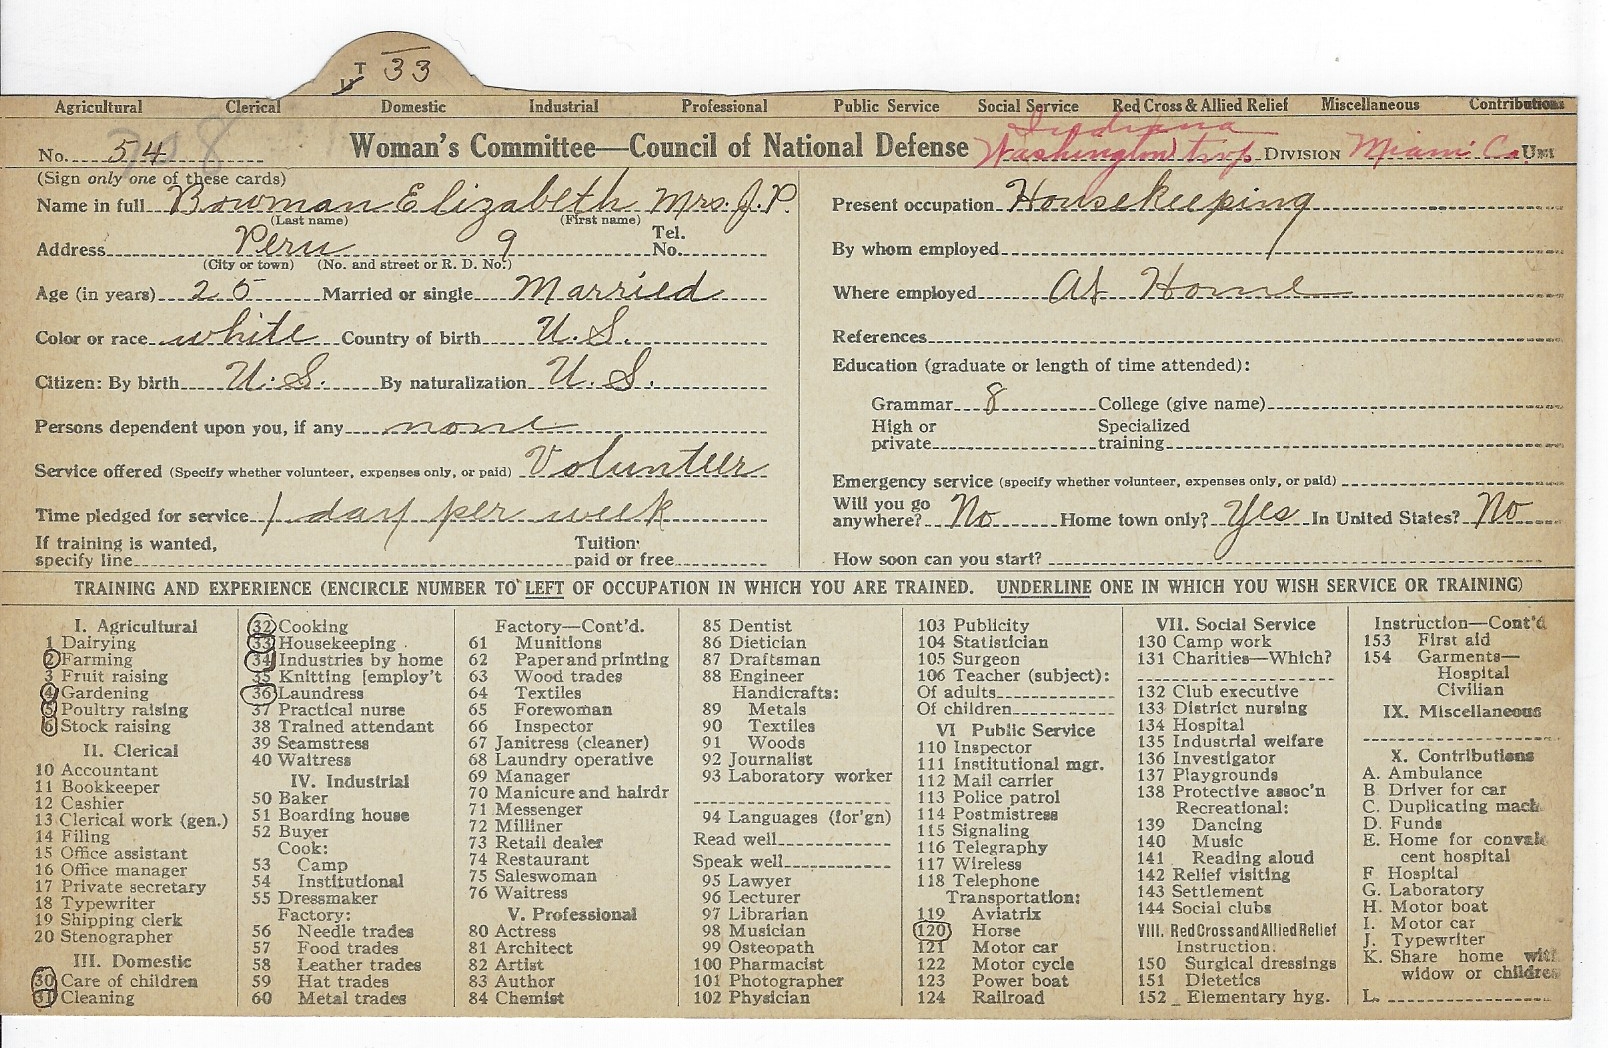 T 33
Agricultural Clerical Domestic Industrial Professional Public Service Social Service Red Cross & Allied Relief Miscellaneous Contributions
Indiana
No. 54 Woman's Committee—Council of National Defense Washington twp. DIVISION Miami Co. UNIT
(Sign only one of these cards)
Name in full Bowman Elizabeth Mrs. J. P.
(Last name) (First name)
Address Peru 9 Tel. No.
(City or town) (No. and street or R. D. No.)
Age (in years) 25 Married or single Married
Color or race white Country of birth U. S.
Citizen: By birth U. S. By naturalization U. S.
Persons dependent upon you, if any none
Service offered (Specify whether volunteer, expenses only, or paid) Volunteer
Time pledged for service 1 day per week
If training is wanted, Tuition
specify line paid or free
Present occupation Housekeeping
By whom employed
Where employed At Home
References
Education (graduate or length of time attended):
Grammar 8 College (give name)
High or Specialized
private training
Emergency service (specify whether volunteer, expenses only, or paid)
Will you go
anywhere? No Home town only? Yes In United States? No
How soon can you start?
TRAINING AND EXPERIENCE (ENCIRCLE NUMBER TO LEFT OF OCCUPATION IN WHICH YOU ARE TRAINED. UNDERLINE ONE IN WHICH YOU WISH SERVICE OR TRAINING)
I. Agricultural
1 Dairying
2 Farming
3 Fruit raising
4 Gardening
5 Poultry raising
6 Stock raising
II. Clerical
10 Accountant
11 Bookkeeper
12 Cashier
13 Clerical work (gen.)
14 Filing
15 Office assistant
16 Office manager
17 Private secretary
18 Typewriter
19 Shipping clerk
20 Stenographer
III. Domestic
30 Care of children
31 Cleaning
32 Cooking
33 Housekeeping
34 Industries by home
35 Knitting [employ't
36 Laundress
37 Practical nurse
38 Trained attendant
39 Seamstress
40 Waitress
IV. Industrial
50 Baker
51 Boarding house
52 Buyer
Cook:
53 Camp
54 Institutional
55 Dressmaker
Factory:
56 Needle trades
57 Food trades
58 Leather trades
59 Hat trades
60 Metal trades
Factory—Cont'd.
61 Munitions
62 Paper and printing
63 Wood trades
64 Textiles
65 Forewoman
66 Inspector
67 Janitress (cleaner)
68 Laundry operative
69 Manager
70 Manicure and hairdr
71 Messenger
72 Milliner
73 Retail dealer
74 Restaurant
75 Saleswoman
76 Waitress
V. Professional
80 Actress
81 Architect
82 Artist
83 Author
84 Chemist
85 Dentist
86 Dietician
87 Draftsman
88 Engineer
Handicrafts:
89 Metals
90 Textiles
91 Woods
92 Journalist
93 Laboratory worker
94 Languages (for'gn)
Read well
Speak well
95 Lawyer
96 Lecturer
97 Librarian
98 Musician
99 Osteopath
100 Pharmacist
101 Photographer
102 Physician
103 Publicity
104 Statistician
105 Surgeon
106 Teacher (subject):
Of adults
Of children
VI Public Service
110 Inspector
111 Institutional mgr.
112 Mail carrier
113 Police patrol
114 Postmistress
115 Signaling
116 Telegraphy
117 Wireless
118 Telephone
Transportation:
119 Aviatrix
120 Horse
121 Motor car
122 Motor cycle
123 Power boat
124 Railroad
VII. Social Service
130 Camp work
131 Charities—Which?
132 Club executive
133 District nursing
134 Hospital
135 Industrial welfare
136 Investigator
137 Playgrounds
138 Protective assoc'n
Recreational:
139 Dancing
140 Music
141 Reading aloud
142 Relief visiting
143 Settlement
144 Social clubs
VIII. Red Cross and Allied Relief
Instruction:
150 Surgical dressings
151 Dietetics
152 Elementary hyg.
Instruction—Cont'd
153 First aid
154 Garments—
Hospital
Civilian
IX. Miscellaneous
X. Contributions
A. Ambulance
B Driver for car
C. Duplicating mach.
D. Funds
E. Home for convales
cent hospital
F Hospital
G. Laboratory
H. Motor boat
I. Motor car
J. Typewriter
K. Share home with
widow or children
L.